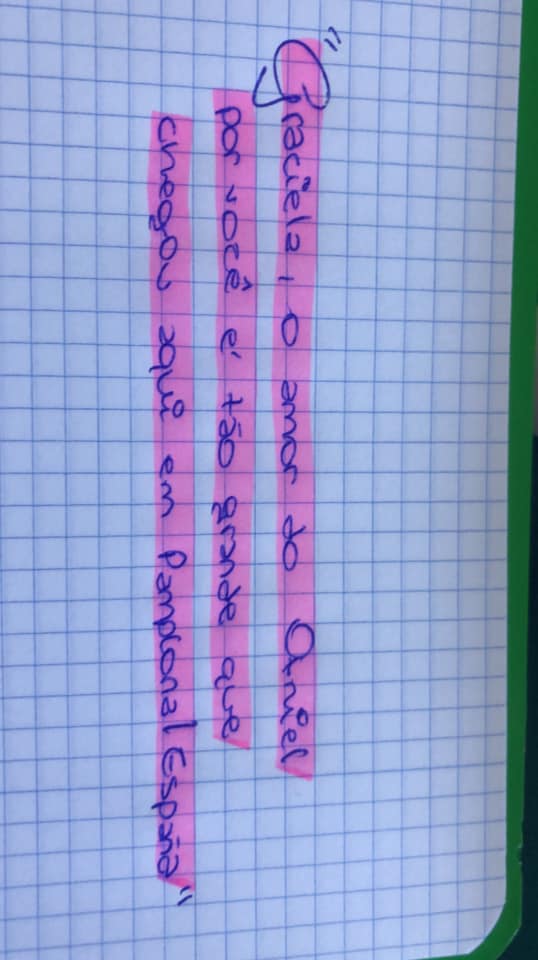 "Graciela, o amor do Aniel
por você é tão grande que
chegou aqui em Pamplona/España"